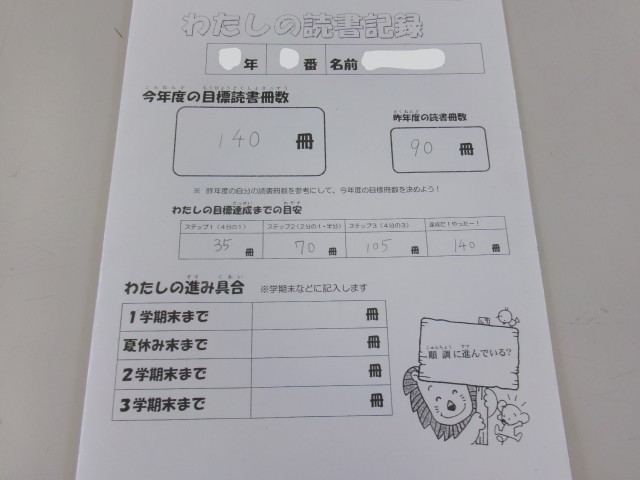 わたしの読書記録
年 番 名前
こんねんど もくひょうどくしょさっすう
今年度の目標読書冊数
140 冊
さくねんど
昨年度の読書冊数
90 冊
※ 昨年度の自分の読書冊数を参考にして、今年度の目標冊数を決めよう!
たっせい めやす
わたしの目標達成までの目安
ステップ1(4分の1) ステップ2(2分の1・半分) ステップ3(4分の3) 達成だ!やったー!
35 冊 70 冊 105 冊 140 冊
すす ぐあい
わたしの進み具合 ※学期末などに記入します
1学期末まで 冊
夏休み末まで 冊
2学期末まで 冊
3学期末まで 冊
じゅんちょう すす
順調に進んでいる?